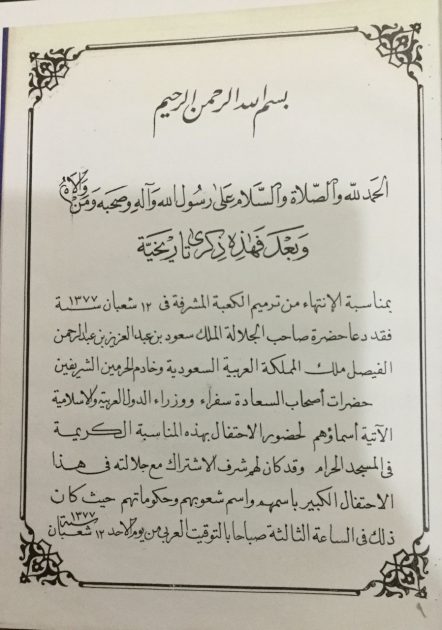 بسم الله الرحمن الرحيم
الحمد لله والصلاة والسلام على رسول الله وآله وصحبه ومن والاه
وبعد فهذه ذكرى تاريخية
بمناسبة الإنتهاء من ترميم الكعبة المشرفة فى ١٢ شعبان سنة ١٣٧٧
فقد دعا حضرة صاحب الجلالة الملك سعود بن عبد العزيز بن عبد الرحمن
الفيصل ملك المملكة العربية السعودية وخادم الحرمين الشريفين
حضرات أصحاب السعادة سفراء ووزراء الدول العربية والاسلامية
الآتية أسماؤهم لحضور الاحتفال بهذه المناسبة الكريمة
فى المسجد الحرام وقد كان لهم شرف الاشتراك مع جلالته فى هذا
الاحتفال الكبير باسمهم واسم شعوبهم وحكوماتهم حيث كان
ذلك فى الساعة الثالثة صباحا بالتوقيت العربى من يوم الاحد ١٢ شعبان سنة ١٣٧٧
١